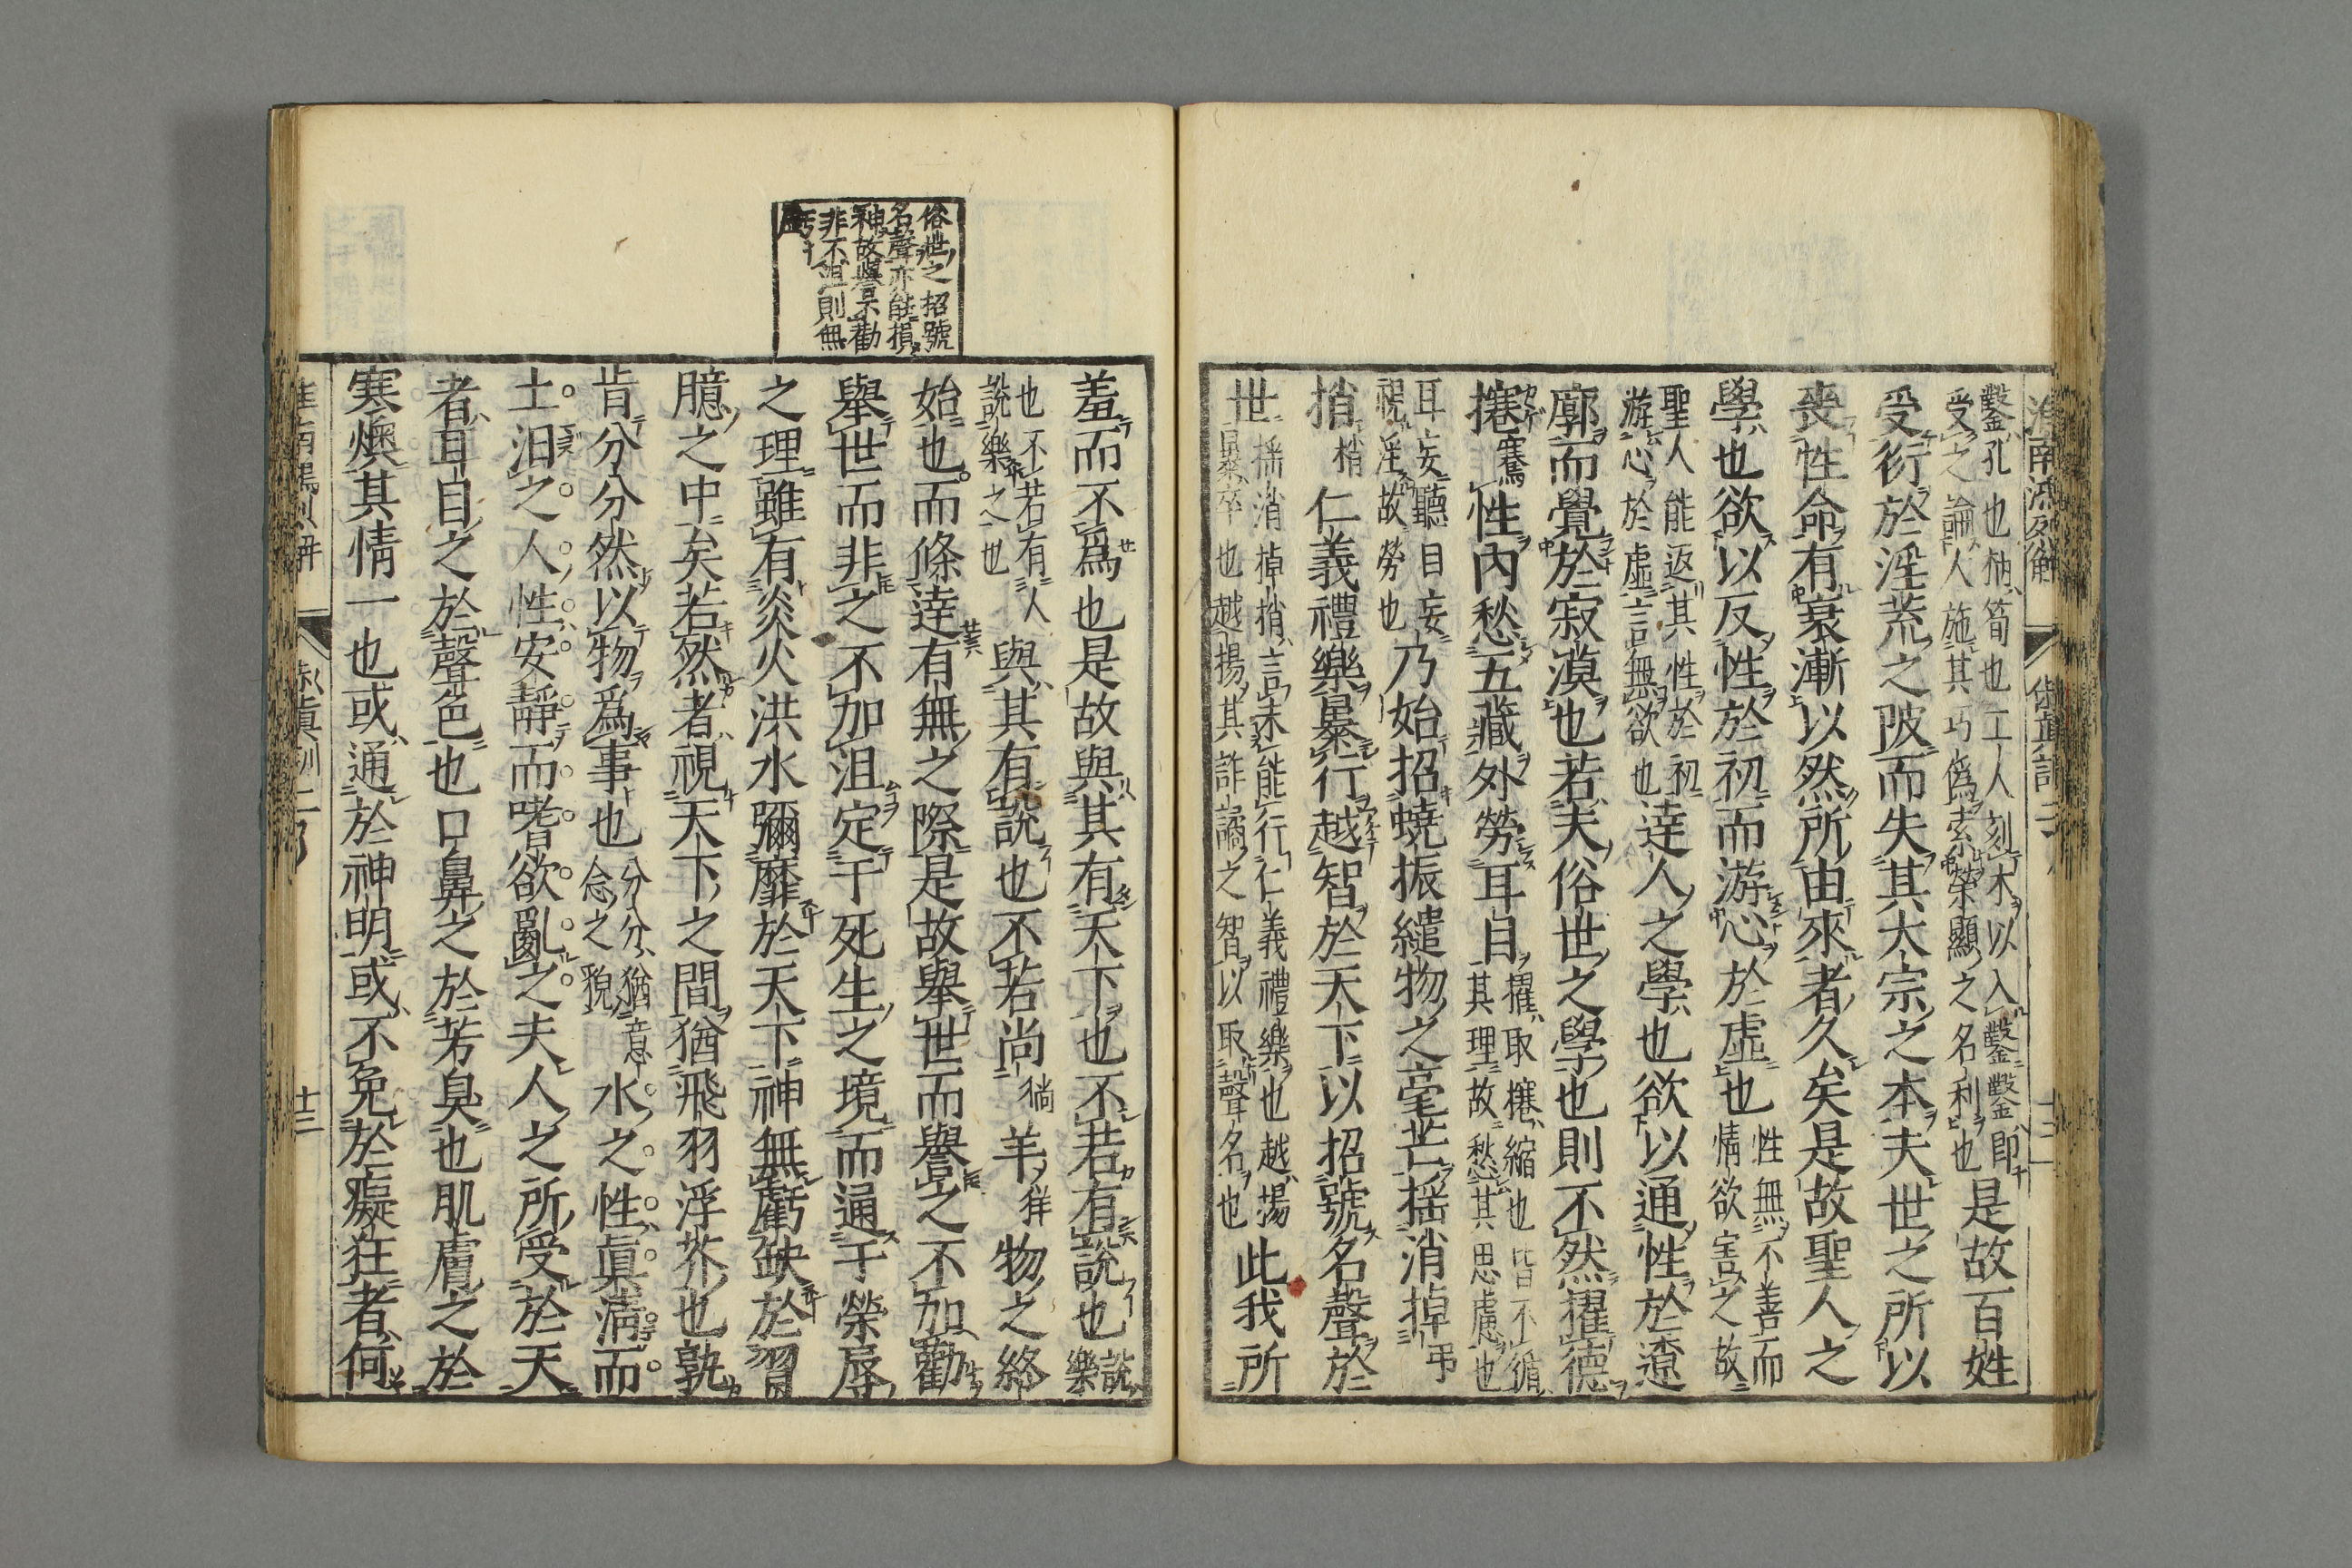 鑿孔也枘筍也工人刻木以入鑿鑿即
受之論人施其巧偽索榮顯之名利也
是故百姓
受衍於淫荒之陂而失其大宗之本夫世之所以
喪性命有衰漸以然所由來者久矣是故聖人之
學也欲以反性於初而游心於虛也
性無不善而
情欲害之故
聖人能返其性於初
游心於虛言無欲也
達人之學也欲以通性於遼
廓而覺於寂漠也若夫俗世之學也則不然擢德
攓騫性內愁五藏外勞耳目
擢取攓縮也皆不循
其理故愁其思慮也
耳妄聽目妄
視淫故勞也
乃始招蟯振繾物之毫芒揺消掉弔
捎梢仁義禮樂暴行越智於天下以招號名聲於
世
揺消掉捎言未能行仁義禮樂也越揚
暴卒也越揚其詐譎之智以取聲名也
此我所
羞而不爲也是故與其有天下也不若有說也
說
樂
也不若有人
說樂之也
與其有說也不若尚徜羊徉物之終
始也而條達有無之際是故舉世而譽之不加勸
舉世而非之不加沮定于死生之境而通于榮辱
之理雖有炎火洪水彌靡於天下神無虧缺於胷
臆之中矣若然者視天下之間猶飛羽浮芥也孰
肯分分然以物爲事也
分分猶意
念之貌
水之性眞淸而
土汨之人性安靜而嗜欲亂之夫人之所受於天
者耳目之於聲色也口鼻之於芳臭也肌膚之於
寒燠其情一也或通於神明或不免於癡狂者何
俗世之招號
名聲亦能損
神故譽不勸
非不沮則無
虧
十二
十三